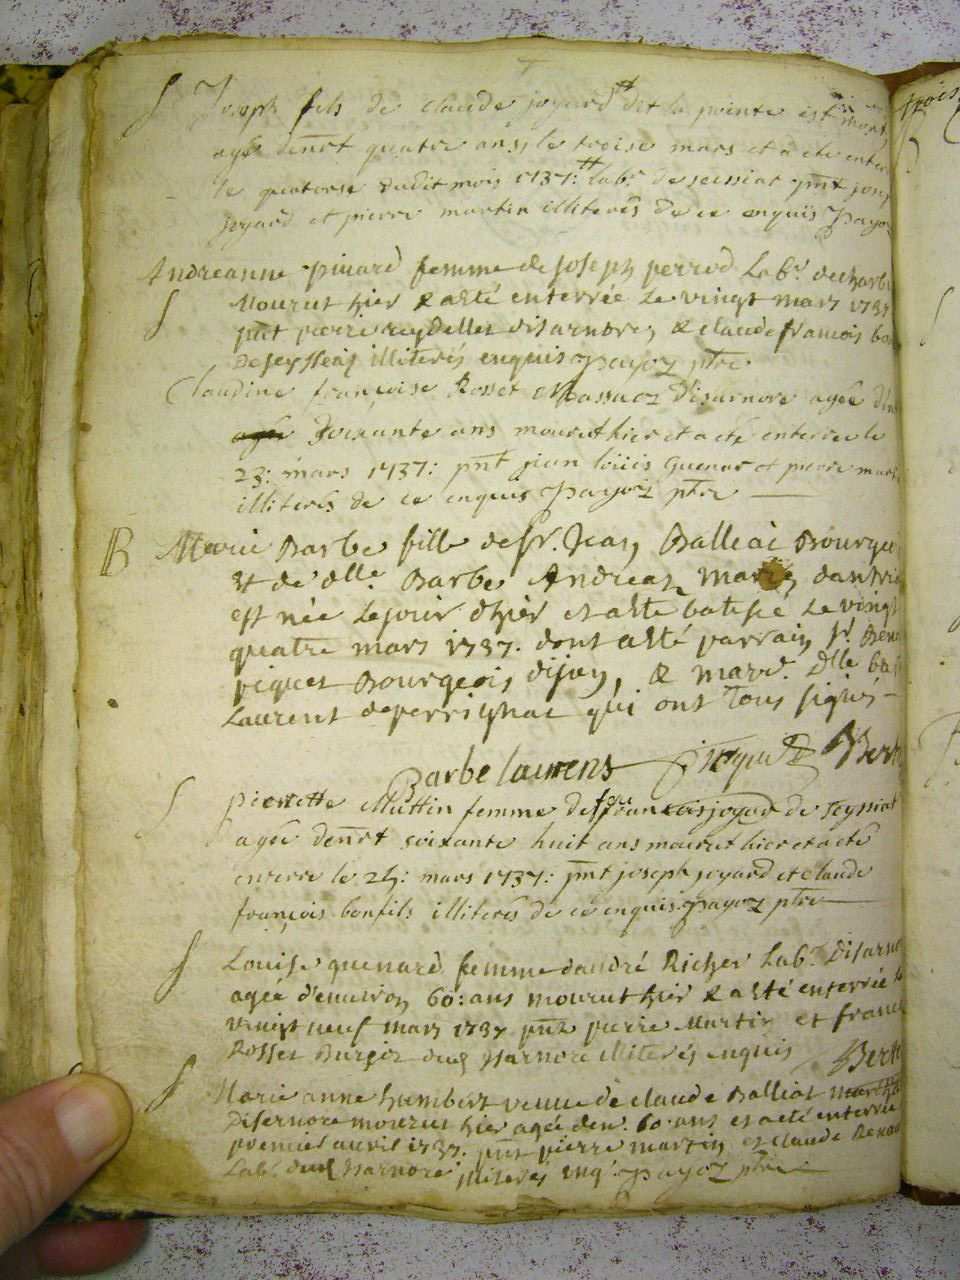 S Joseph fils de claude joyard dit la pointe est mort
agée denrt quatre ans, le troise mars et a ete enter
le quatorse dudit mois 1737: lab.r de seissiat pnt jos
joyard et pierre martin illiterés de ce enquis Payoz
Andreanne pivard femme de Joseph perrod Lab.r de
S Mourut hier & a esté enterrée Le vingt mars 1737
pnt pierre reydellet disarnore, & claude francois
De seysseia illiterés enquis Payoz ptre
Claudine françoise Rosset Massacoz Disarnore agée
soixante ans mourut hier et a eté enterrée le
23: mars 1737: pnt jean loüis Guenar et pierre mar
illiterés de ce enquis Payoz ptre
B Marie Barbe fille de Sr. Jean Balleat Bourge
et de dlle. Barbe Andrea
est née Le jour d'hier et a esté batisée Le vingt
quatre mars 1737. dont a esté parrain Sr.
piquet Bourgeois & mare. Dlle
Laurent deperrignac qui ont Tous signés
Barbe laurens piquet
S pierrette Muttin femme de francois joyard de seyssiat
agée denrt soixante huit ans mourut hier et a eté
enterre le 25: mars 1737: pnt joseph joyard et claude
françois bonfils illiterés de ce enquis Payoz ptre
S Louise quenard femme d'andré Richer Lab.r Disarno
agée d'environ 60: ans mourut hier & a esté enterrée
vingt neuf mars 1737 pnt pierre Martin et franc
Rosset Burgoz dud Isarnore illiterés enquis
S Marie anne humbert veuve de claude Balleat
Disernore mourut hier agée den. 60. ans et a eté enterrée
premier avril 1737. pnt pierre martin et claude
Lab. dud Isarnore illiterés enq. Payoz ptre